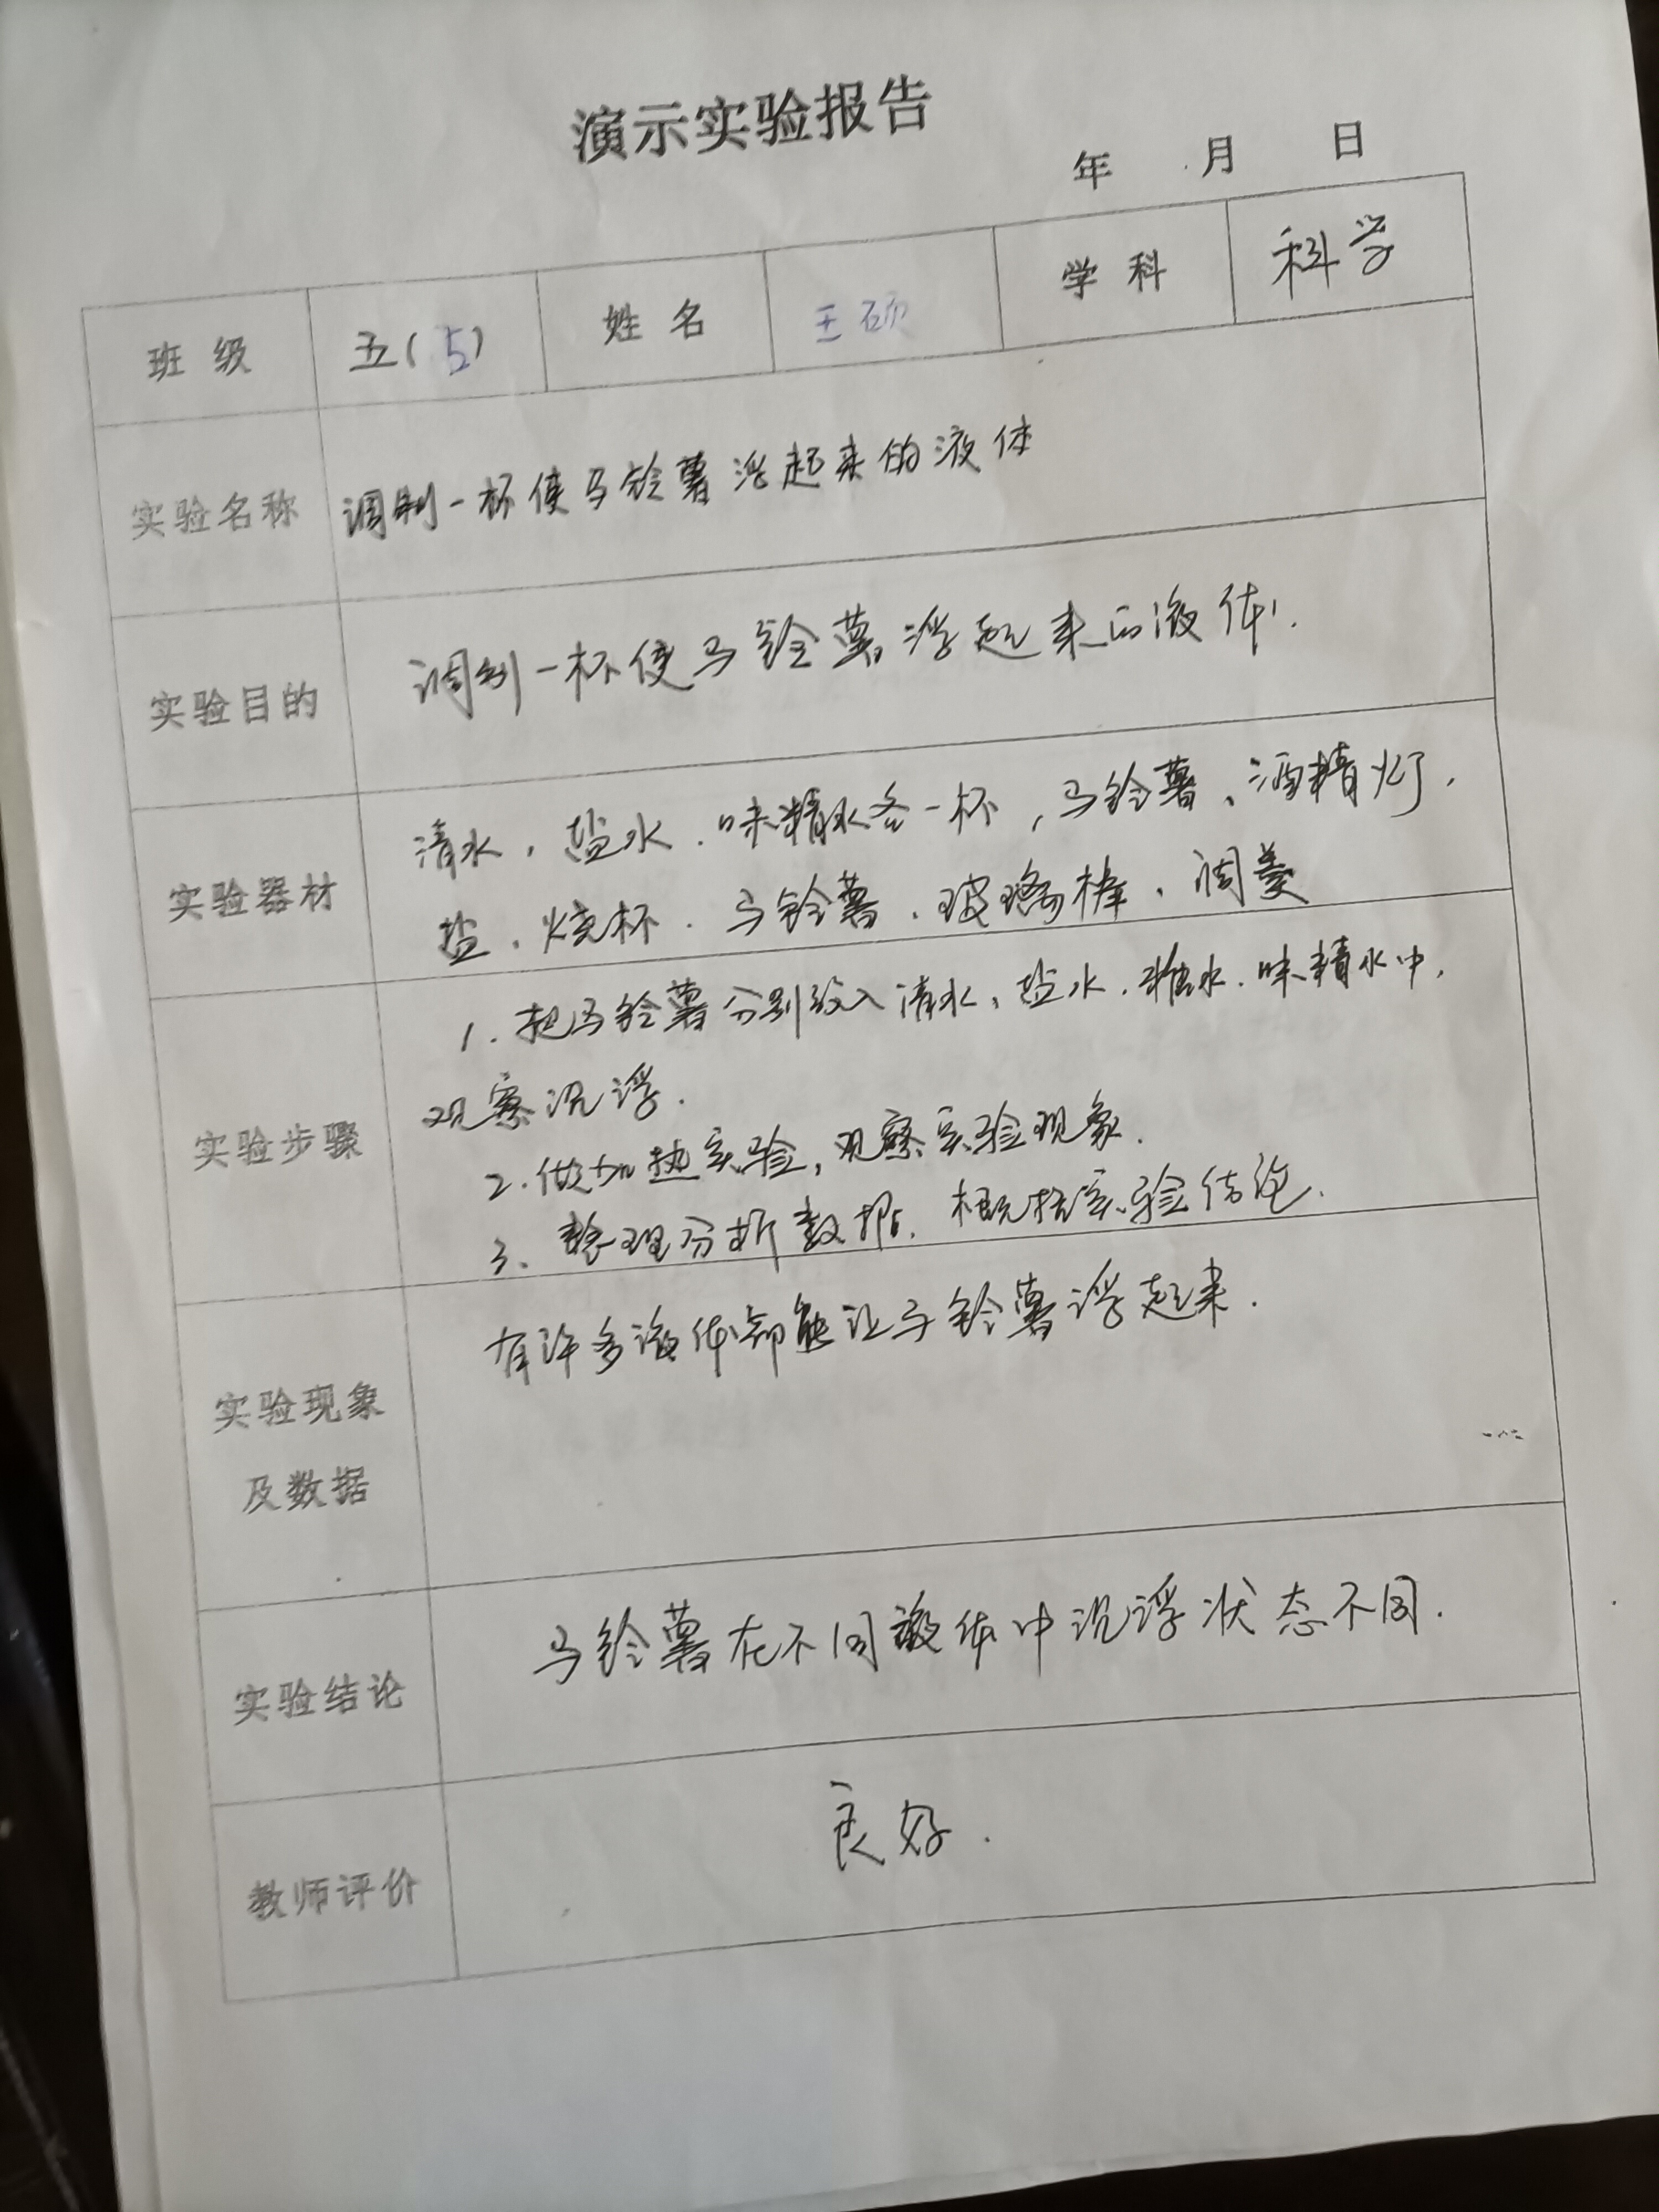 演示实验报告
年 月 日
班级 五(5) 姓名 王硕 学科 科学
实验名称 调制一杯使马铃薯浮起来的液体
实验目的 调制一杯使马铃薯浮起来的液体.
实验器材 清水,盐水.味精水各一杯,马铃薯、酒精灯,
盐、烧杯.马铃薯、玻璃棒、调羹
实验步骤 1.把马铃薯分别放入清水,盐水.糖水.味精水中,
观察沉浮.
2.做加热实验,观察实验现象.
3、整理分析数据.概括实验结论.
实验现象
及数据
有许多液体都能让马铃薯浮起来.
实验结论 马铃薯在不同液体中沉浮状态不同.
教师评价 良好.